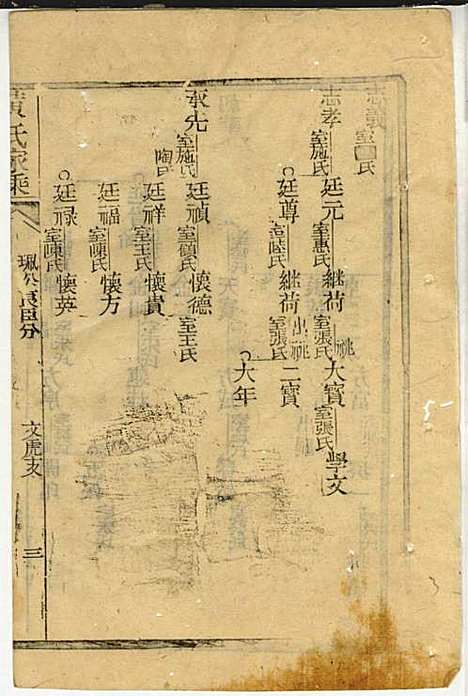 志義 室 氏
志孝 室施氏 廷元 室惠氏 継荷 室張氏 祧 大寳 室張氏 學文
廷尊 室陸氏 継荷 出祧 室張氏 二寳
大年
承先 室施氏 廷禎 室顧氏 懷德 室王氏
廷祥 室王氏 懷貴
廷福 室陳氏 懷方
廷禄 室陳氏 懷英
黄氏家乘
珮公長臣分
文虎支
三